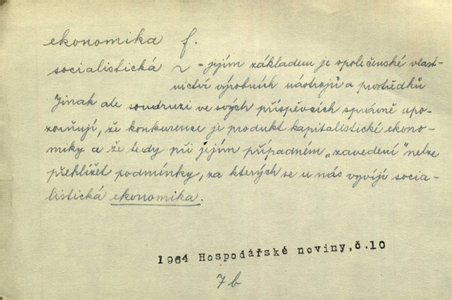 ekonomika f.
socialistická ~ - jejím základem je společenské vlast-
nictví výrobních nástrojů a prostředků
Jinak ale soudruzi ve svých příspěvcích správně upo-
zorňují, že konkurence je produkt kapitalistické ekono-
miky a že tedy při jejím případném „zavedení" nelze
přehlížet podmínky, za kterých se u nás vyvíjí socia-
listická ekonomika.
1964 Hospodářské noviny, č.10
7b